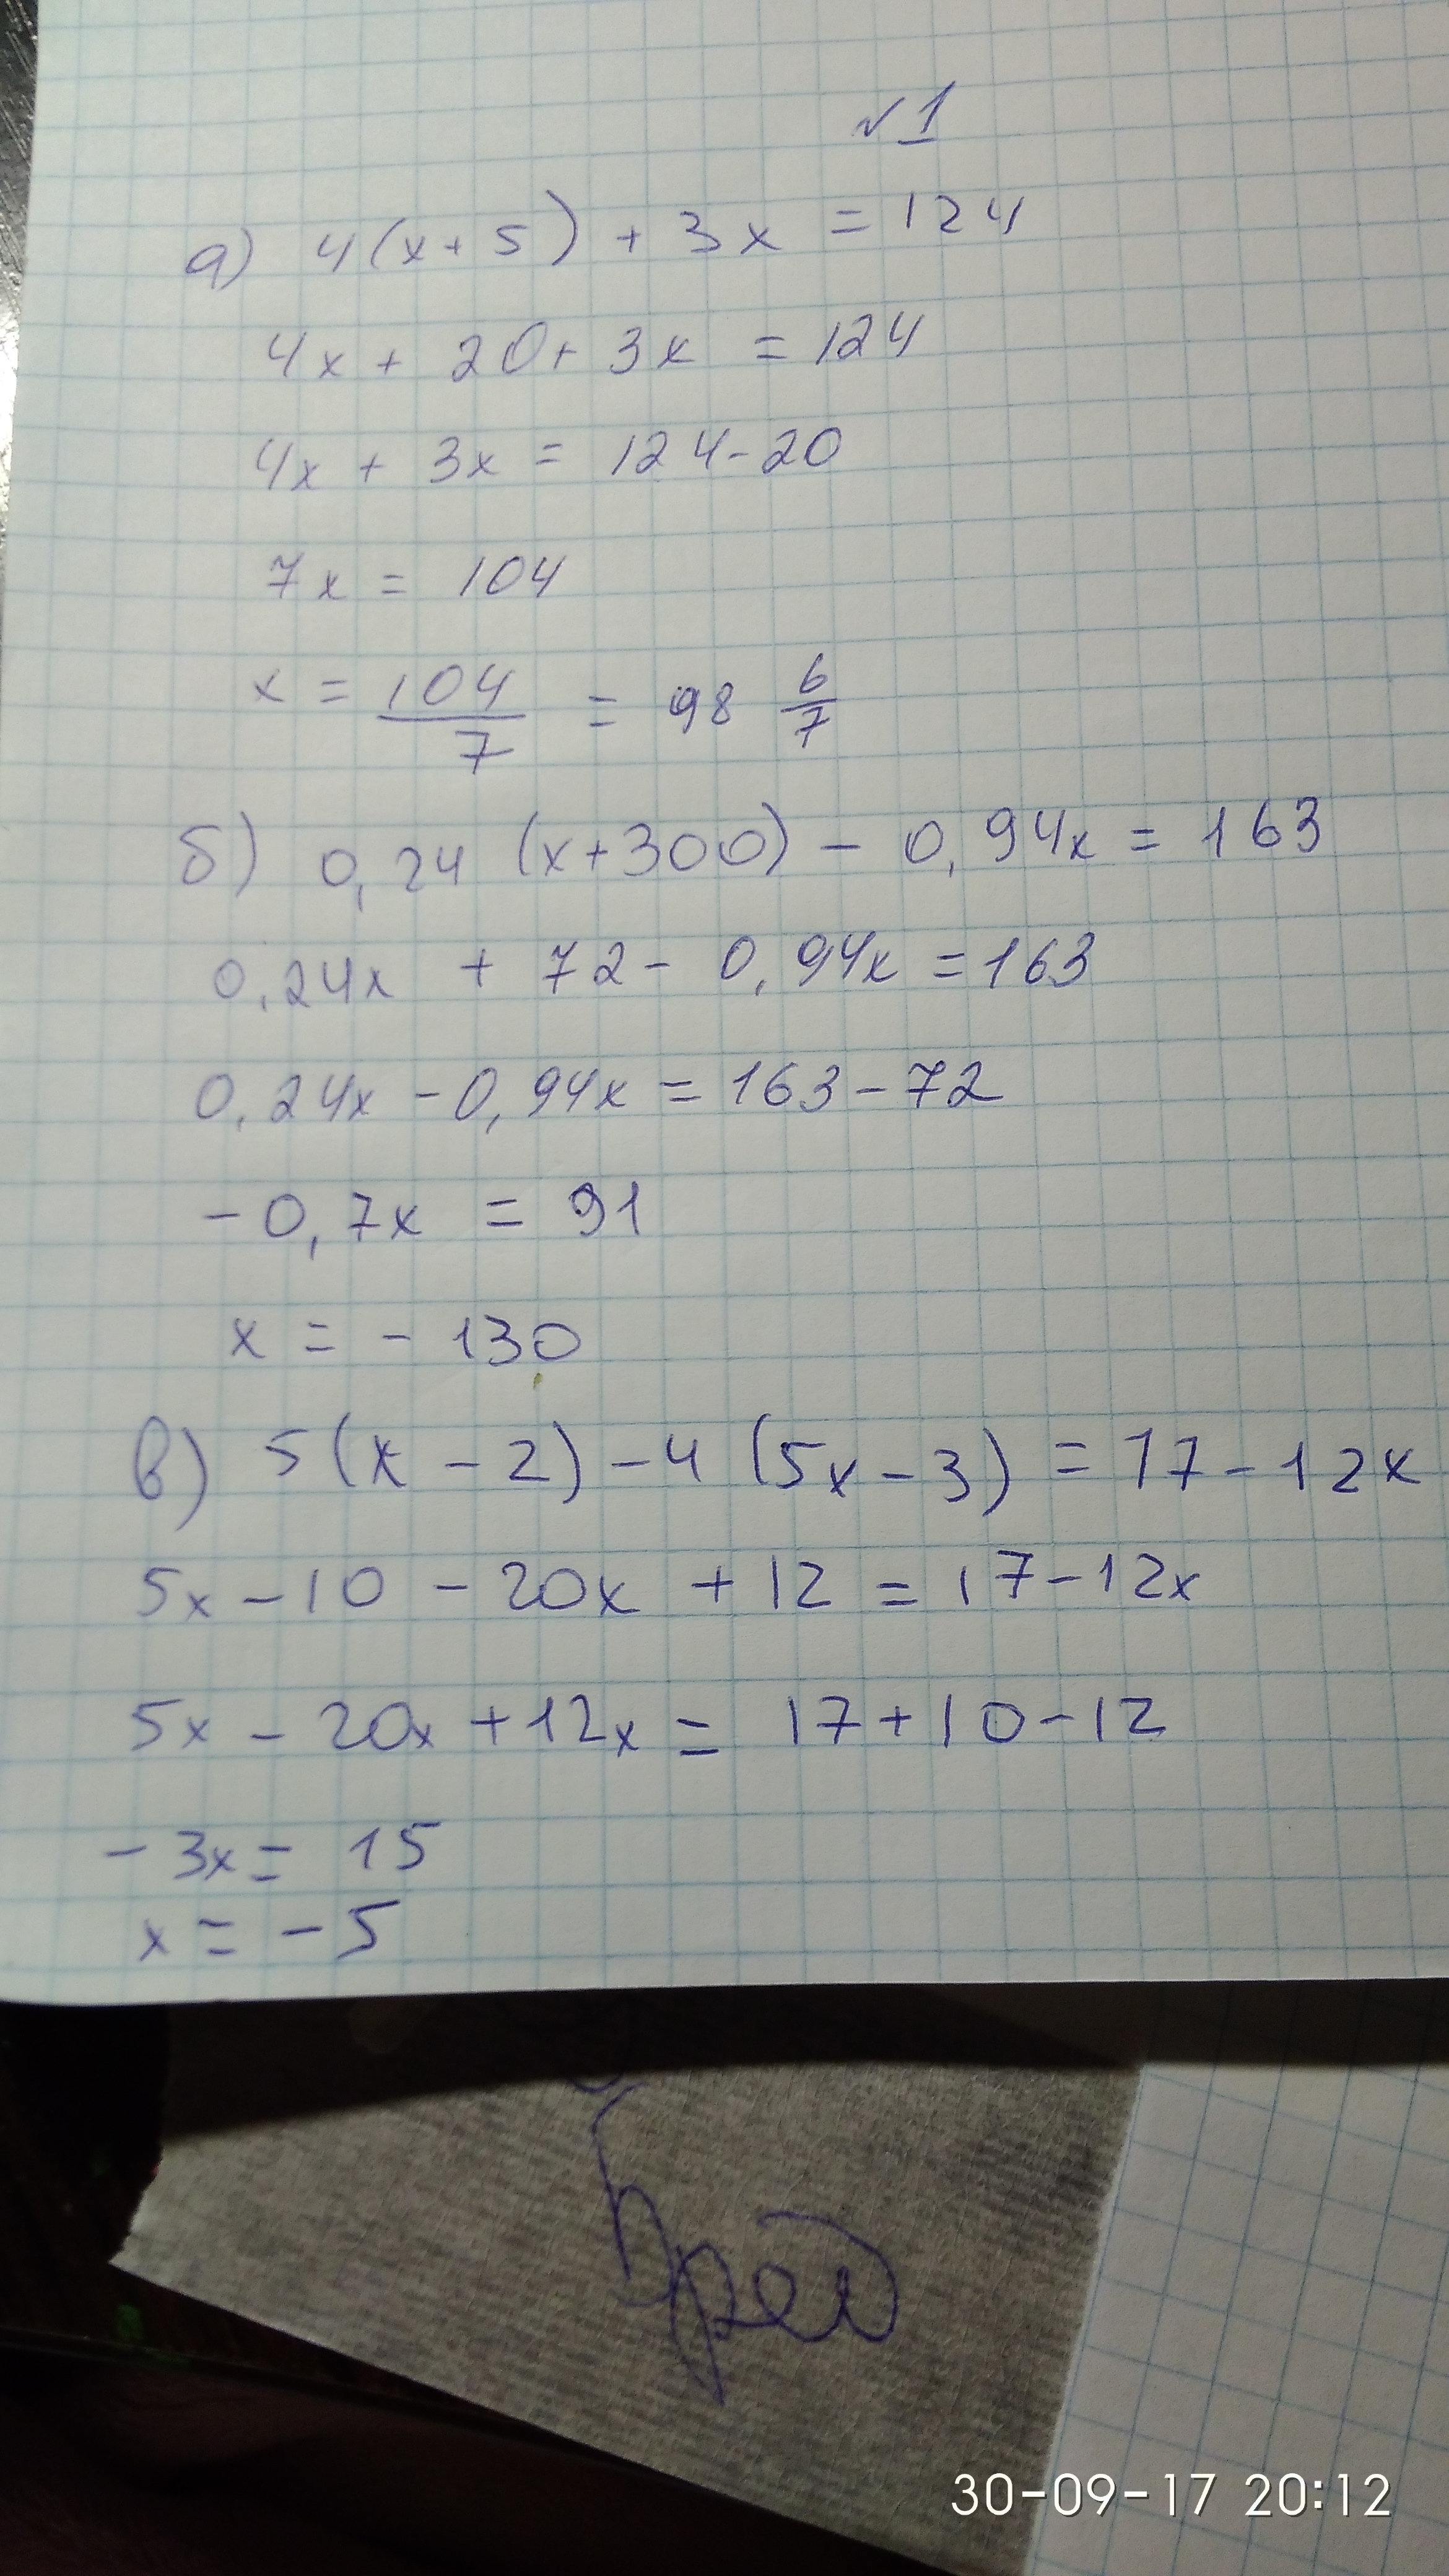 №1
а) 4(x+5) + 3x = 124
4x + 20 + 3x = 124
4x + 3x = 124-20
7x = 104
x = 104/7 = 98 6/7
б) 0,24 (x+300) - 0,94x = 163
0,24x + 72 - 0,94x = 163
0,24x - 0,94x = 163 - 72
-0,7x = 91
x = - 130
в) 5(x - 2) - 4 (5x - 3) = 17 - 12x
5x - 10 - 20x + 12 = 17 - 12x
5x - 20x + 12x = 17 + 10 - 12
- 3x = 15
x = - 5
30-09-17 20:12